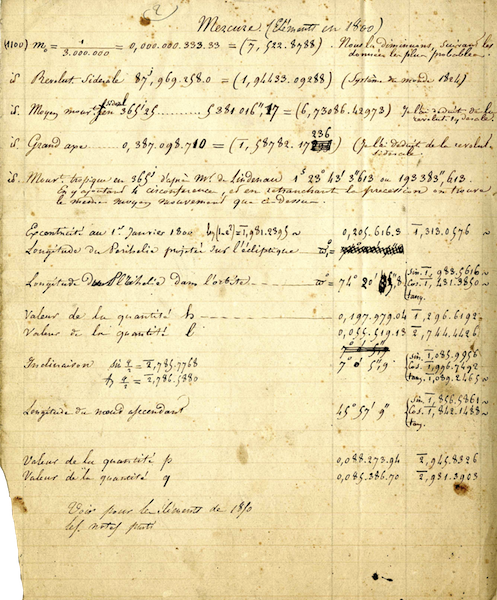 2
Mercure. (Eléments en 1800)
(1100) m₀ = 1/3.000.000 = 0,000.000.333.33 = (7̅, 522.8788) Nous la diminuons, suivant les données les plus probables.
id. Révolut. Sidérale 87j,969.258.0 = (1,94433.09288) (Système du monde 1824)
id. Moyen mouv.t sidéral en 365j25 ........ 5381016",17 = (6,73086.42973) Je l'ai déduit de la révolut. sydérale.
id. Grand axe 0,387.098.710 = (1̅,58782.17236) Je l'ai déduit de la révolut. sidérale.
id. Mouv.t tropique en 365j d'après Mr. de Lindenau 1s 23° 43' 3"613 ou 193383",613.
En y ajoutant 4 circonférence, et en retranchant la précession on trouve
le même moyen mouvement que ci dessus.
Excentricité au 1er Janvier 1800 log(1-e²) = 1̅,981.2895 0,205.616.3 1̅,313.0576
Longitude du Périhélie projetée sur l'écliptique ϖ₀' =
Longitude du Périhélie dans l'orbite ϖ° = 74° 20' "8 { Sin. 1̅,983.5616
Cos. 1̅,431.3850
tang.
Valeur de la quantité h 0,197.979.04 1̅,296.6192
Valeur de la quantité l 0,055.519.13 2̅,744.4426
Inclinaison sin φ/2 = 2̅,785.7768 7° 0' 5",9 { sin. 1̅,085.9956
tg φ/2 = 2̅,786.5880 Cos. 1̅,996.7492
tang. 1̅,089.2465
Longitude du nœud ascendant 45° 57' 9" { Sin. 1̅,856.5861
Cos. 1̅,842.1488
tang.
Valeur de la quantité p 0,088.273.94 2̅,945.8326
Valeur de la quantité q 0,085.386.70 2̅,931.3903
Voir pour les éléments de 1850
les notes